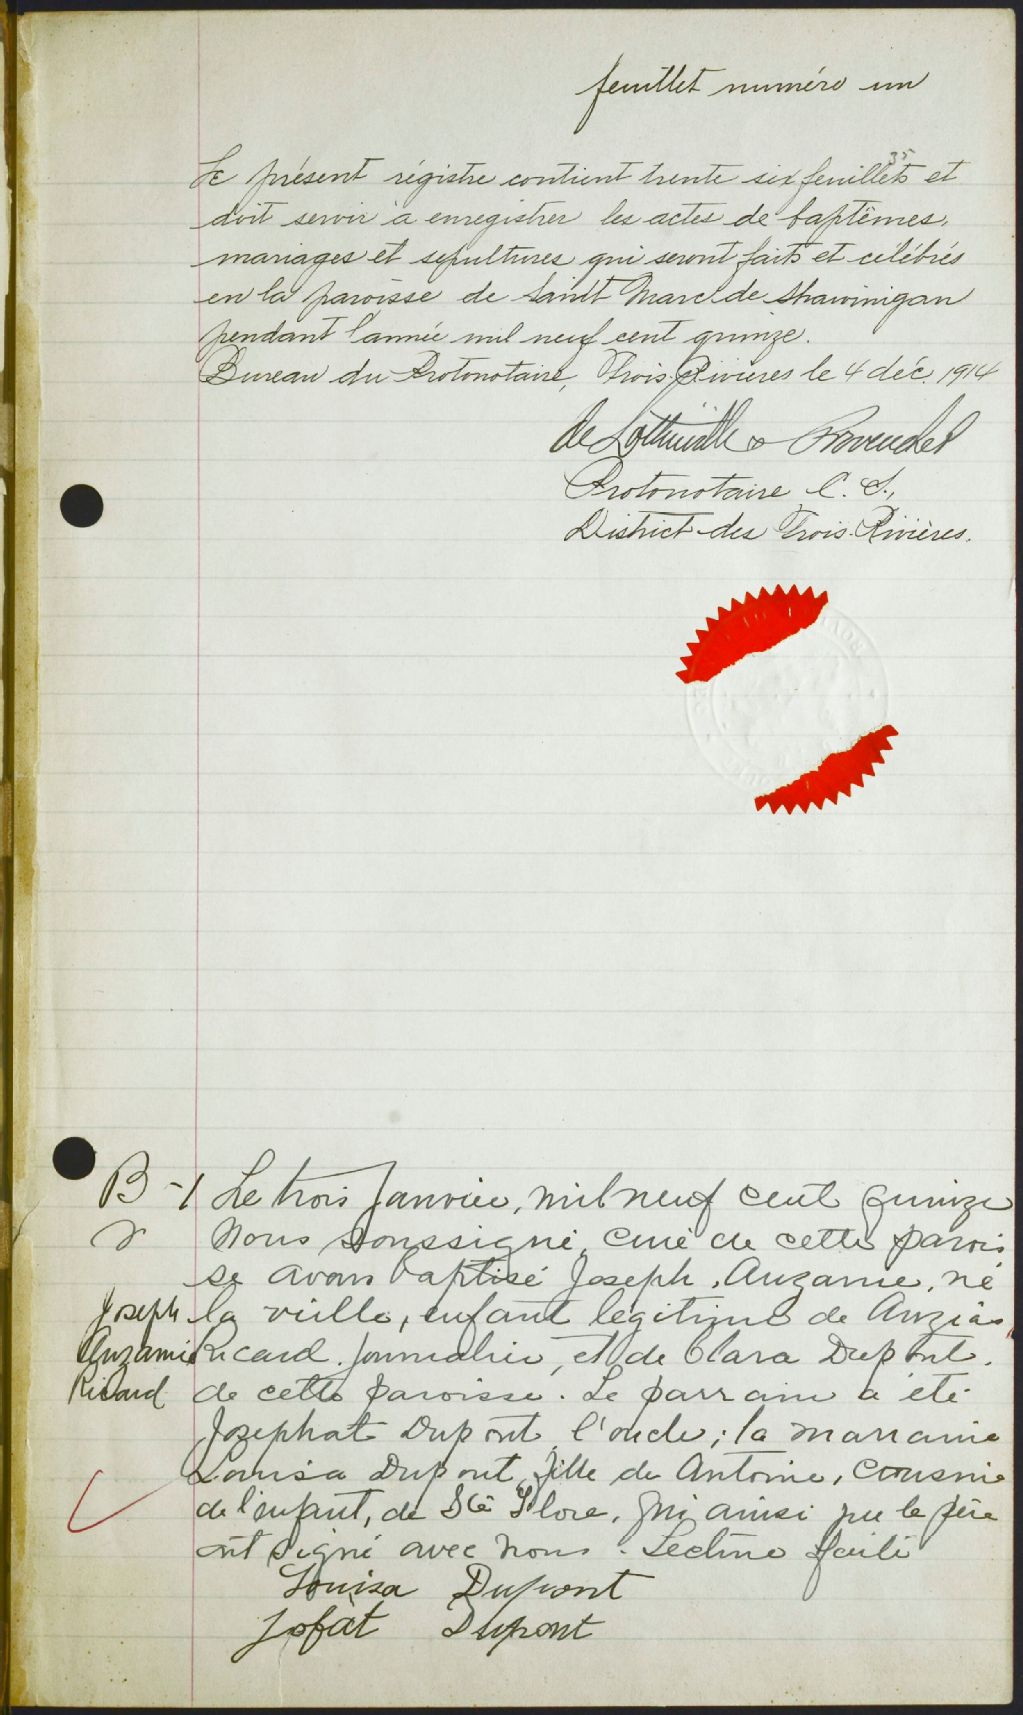 feuillet numéro un
35
Le présent régistre contient trente six feuillets et
doit servir à enregistrer les actes de baptêmes,
mariages et sépultures qui seront faits et célébrés
en la paroisse de Saint Marc de Shawinigan
pendant l'année mil neuf cent quinze.
Bureau du Protonotaire, Trois-Rivières le 4 déc. 1914
de Lottinville & Provencher
Protonotaire C. S.,
District des Trois-Rivières.
B-1 Le trois Janvier, mil neuf cent quinze
Nous soussigné, curé de cette parois
se avons baptisé Joseph, Auzanie, né
Joseph la veille, enfant légitime de Auzias
Auzanie Ricard, journalier, et de Clara Dupont,
Ricard de cette paroisse. Le parrain a été
Josephat Dupont, l'oncle; la marraine
Louisa Dupont, fille de Antoine, cousine
de l'enfant, de Ste Flore, qui ainsi que le père
ont signé avec nous. Lecture faite
Louisa Dupont
Jofat Dupont